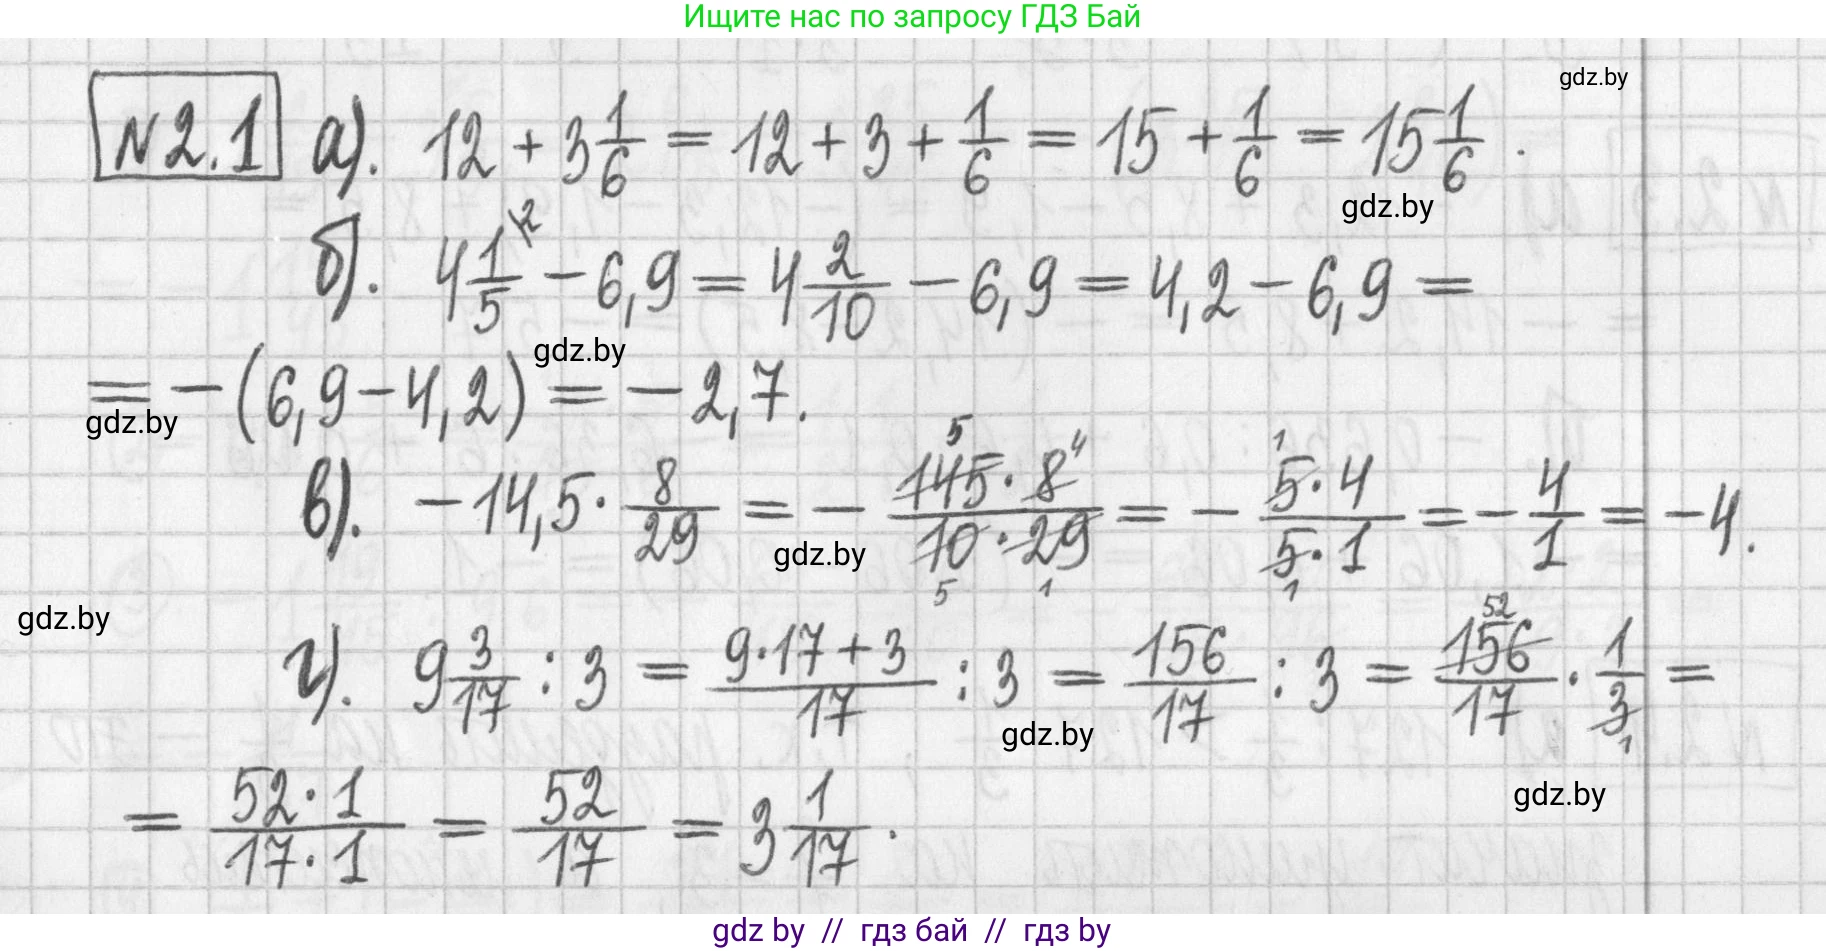 Ищите нас по запросу ГДЗ Бай
gdz.by
№2.1 а). 12 + 3 1/6 = 12 + 3 + 1/6 = 15 + 1/6 = 15 1/6 .
gdz.by
б). 4 1/5 \2 - 6,9 = 4 2/10 - 6,9 = 4,2 - 6,9 =
gdz.by
= - (6,9 - 4,2) = - 2,7.
gdz.by
5 4 1
в). - 14,5 · 8/29 = - 145·8/10·29 = - 5·4/5·1 = - 4/1 = - 4.
gdz.by
5 1 1
gdz.by
52
г). 9 3/17 : 3 = 9·17+3/17 : 3 = 156/17 : 3 = 156/17 · 1/3 =
1
gdz.by
gdz.by
= 52·1/17·1 = 52/17 = 3 1/17 .
gdz by // гдз бай // гдз by